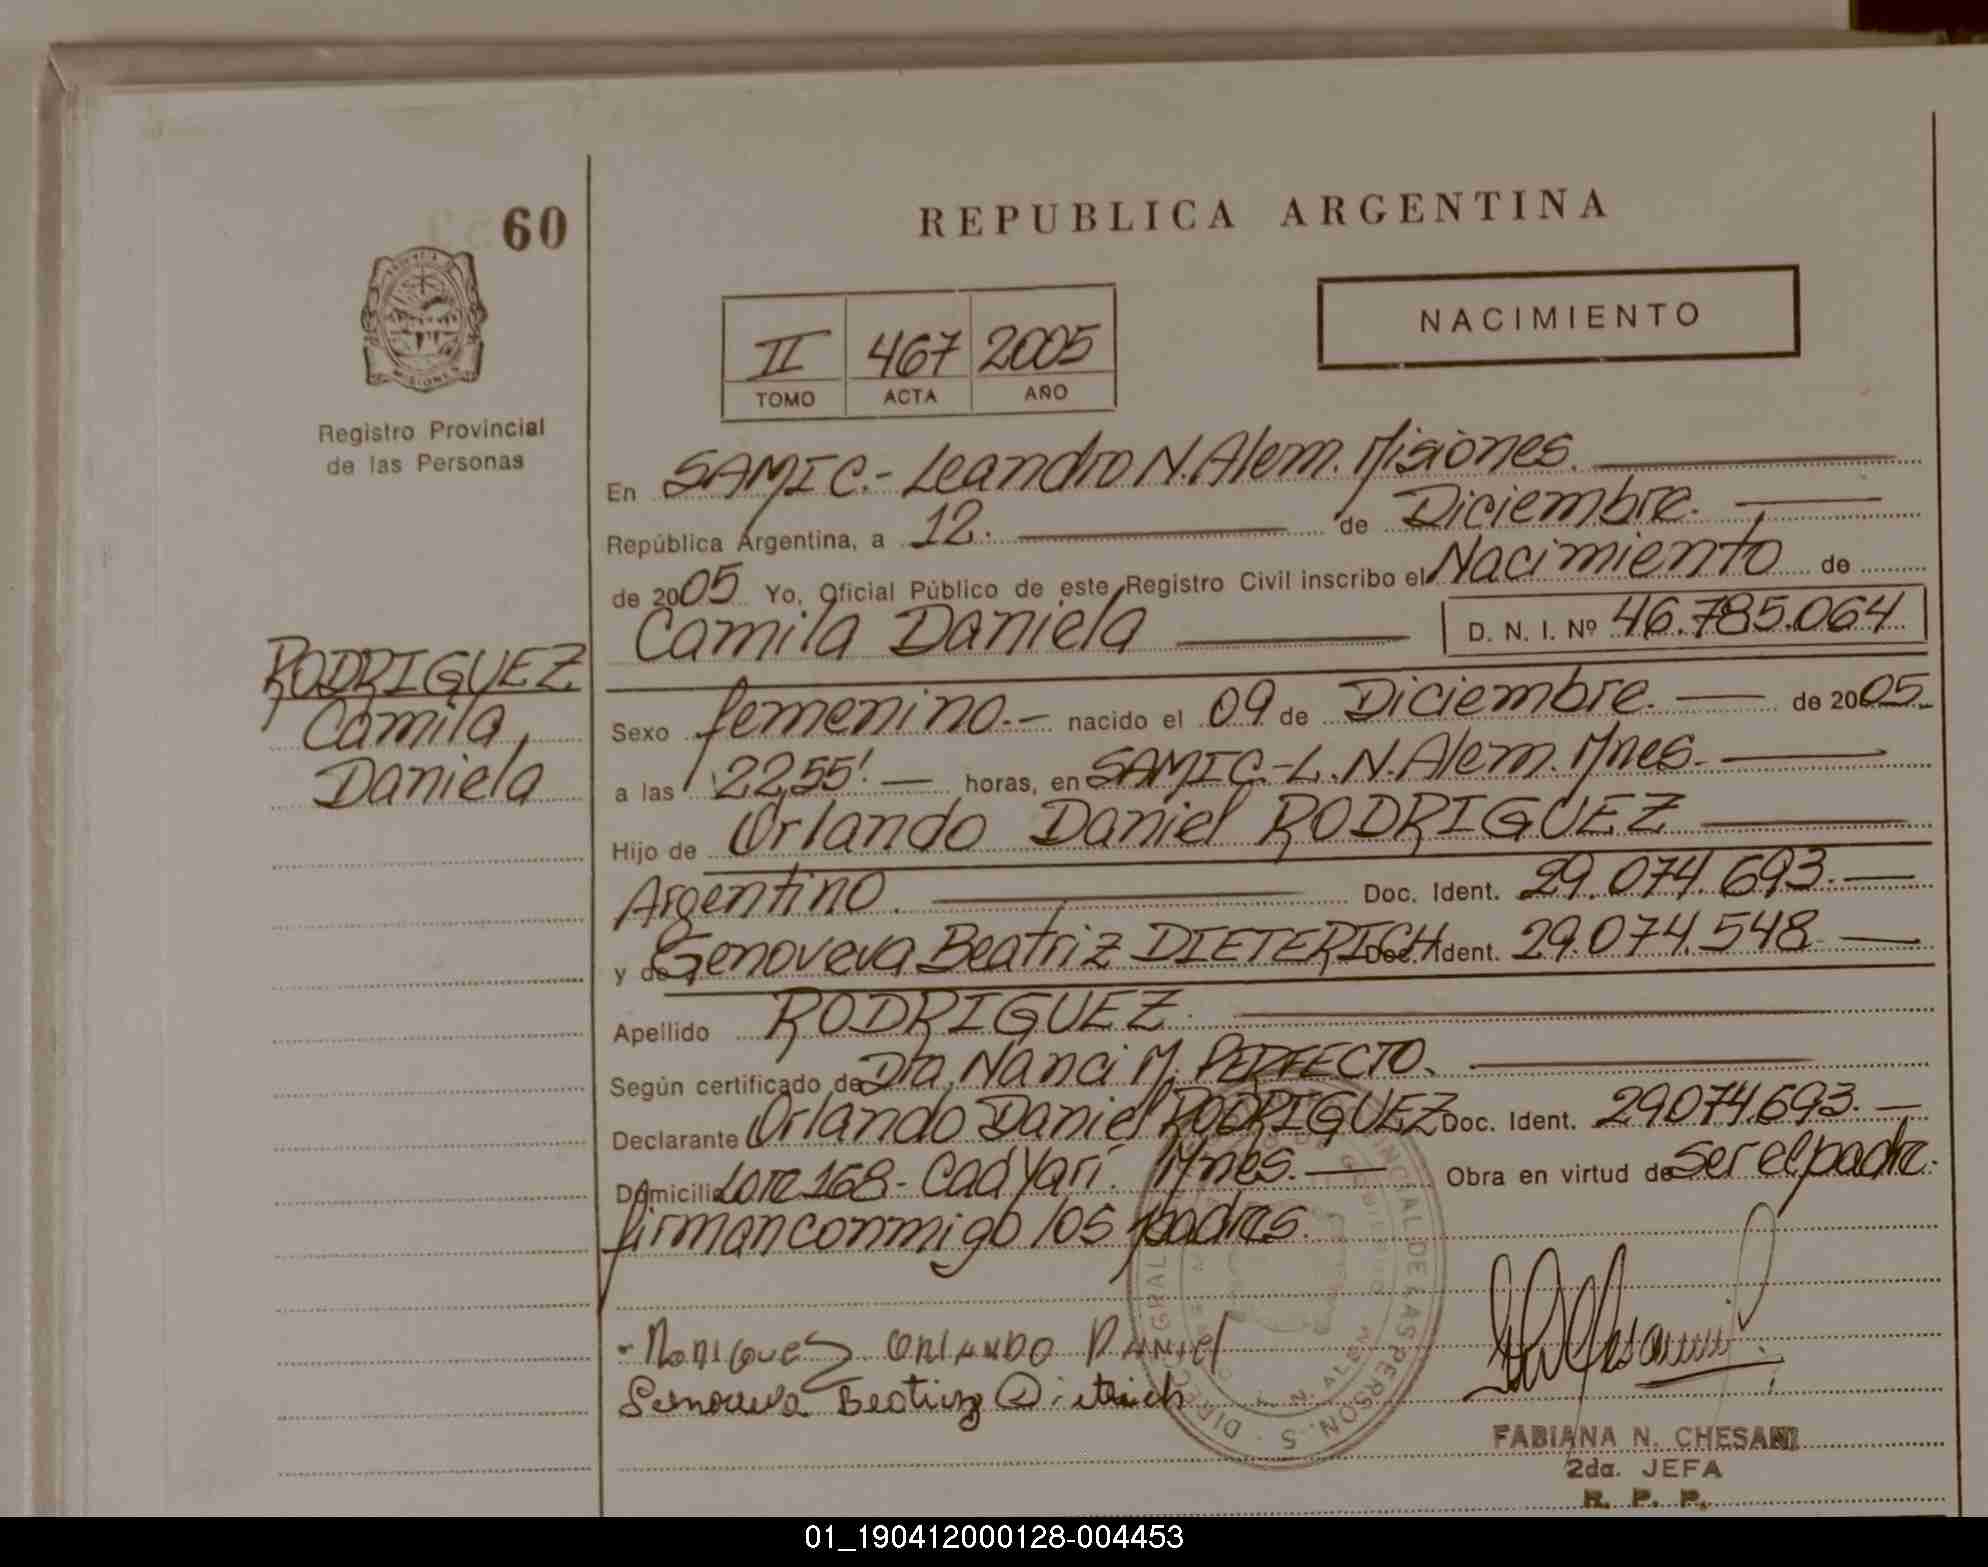 60
REPUBLICA ARGENTINA
NACIMIENTO
II 467 2005
TOMO ACTA AÑO
MISIONES
Registro Provincial
de las Personas
En SAMIC.- Leandro N. Alem. Misiones.
República Argentina, a 12. de Diciembre.
de 2005 Yo, Oficial Público de este Registro Civil inscribo el Nacimiento de
Camila Daniela D. N. I. Nº 46.785.064
RODRIGUEZ
Camila
Daniela
Sexo femenino.- nacido el 09 de Diciembre. de 2005.
a las 22,55' horas, en SAMIC.-L.N.Alem. Mnes.
Hijo de Orlando Daniel RODRIGUEZ
Argentino. Doc. Ident. 29.074.693.
y de Genoveva Beatriz DIETERICH Doc. Ident. 29.074.548
Apellido RODRIGUEZ.
Según certificado de Dra. Nanci M. PERFECTO.
Declarante Orlando Daniel RODRIGUEZ Doc. Ident. 29074.693.
Domicilio Lote 168- Cad Yarí. Mnes. Obra en virtud de ser el padre.
firman conmigo los padres.
Rodriguez Orlando Daniel
Genoveva Beatriz Dietrich
FABIANA N. CHESANI
2da. JEFA
R. P. P.
01_190412000128-004453